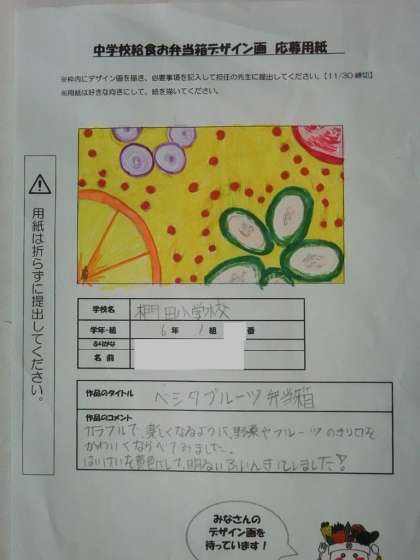 中学校給食お弁当箱デザイン画 応募用紙
※枠内にデザイン画を描き、必要事項を記入して担任の先生に提出してください。【11/30締切】
※用紙は好きな向きにして、絵を描いてください。
用紙は折らずに提出してください。
学校名 棚田小学校
学年・組 6年 1組 番
ふりがな
名前
作品のタイトル ベジタフルーツ弁当箱
作品のコメント
カラフルで、楽しくなるように、野菜やフルーツのきり口を
かわいくならべてみました。
はいけいを黄色にして、明るいふんいきにしました!
みなさんの
デザイン画を
待っています!